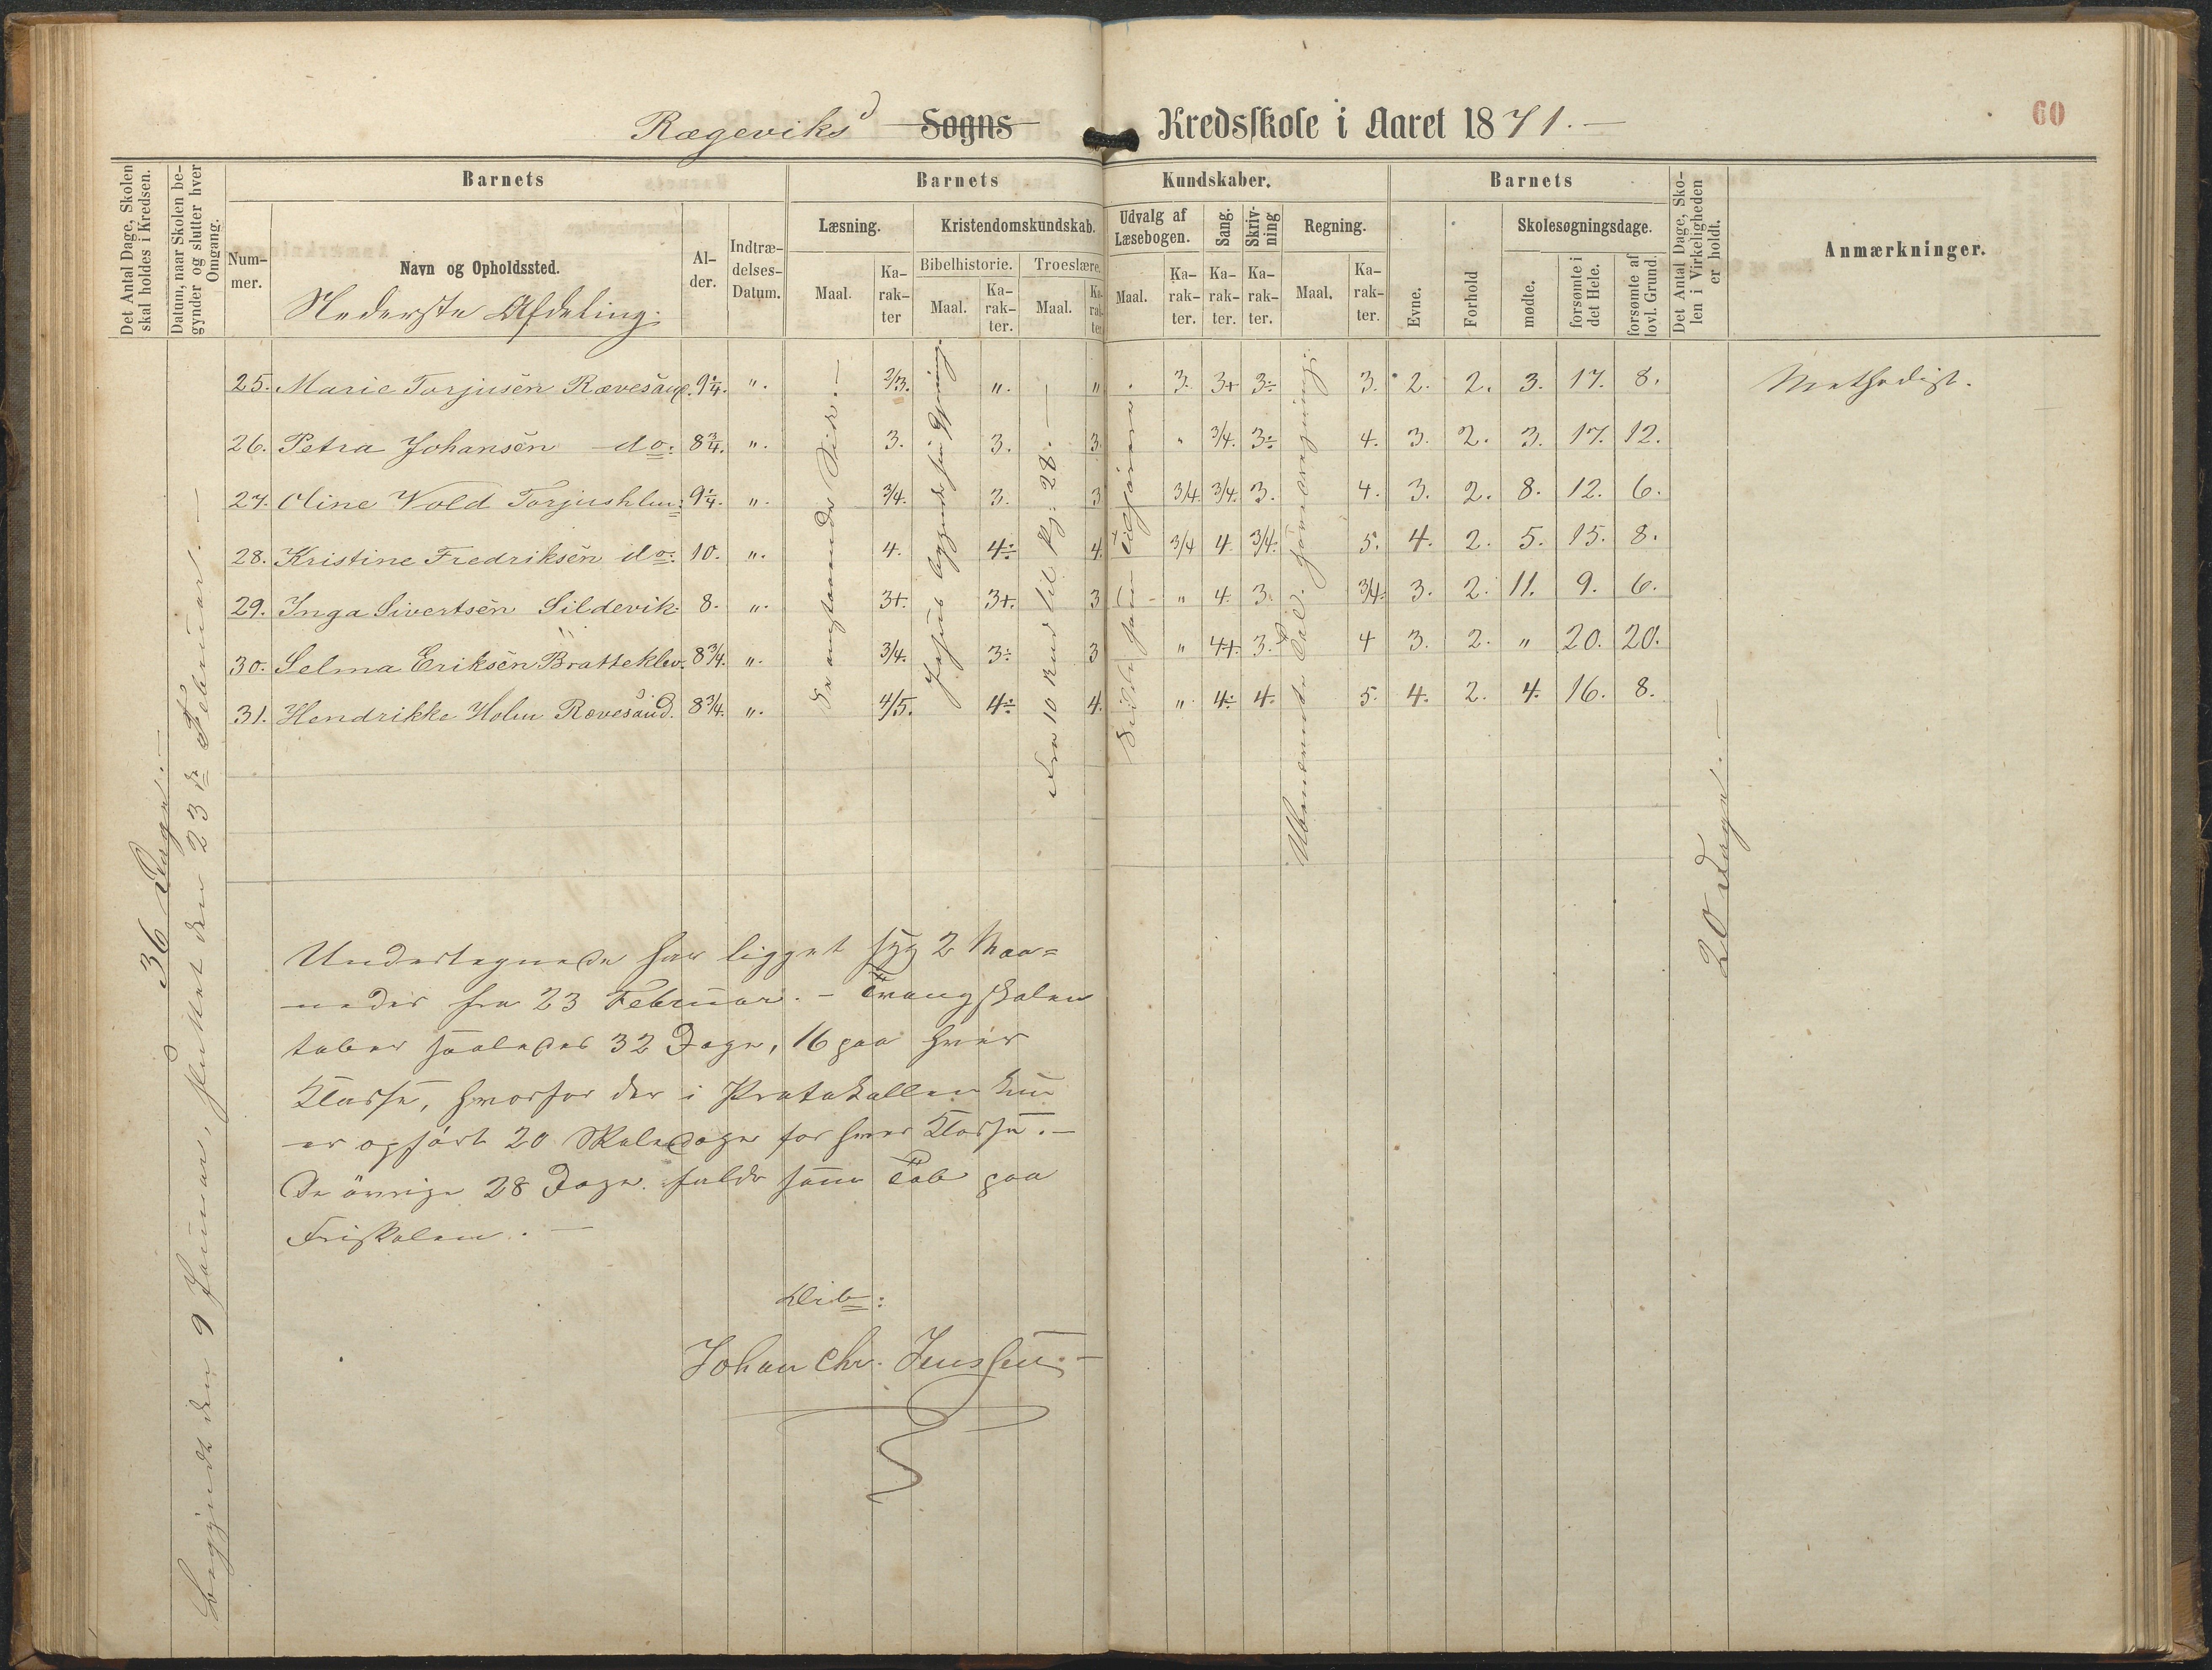 Rægeviks Sogns Kredsskole i Aaret 1871.—
60
Det Antal Dage, Skolen skal holdes i Kredsen.
Datum, naar Skolen begynder og slutter hver Omgang.
Barnets
Barnets
Kundskaber.
Barnets
Det Antal Dage, Skolen i Virkeligheden er holdt.
Anmærkninger.
Nummer.
Navn og Opholdssted.
Nederste Afdeling.
Alder.
Indtrædelses-Datum.
Læsning.
Kristendomskundskab.
Udvalg af Læsebogen.
Sang.
Skrivning
Regning.
Evne.
Forhold
Skolesøgningsdage.
Bibelhistorie.
Troeslære.
Maal.
Karakter
Maal.
Karakter.
Maal.
Karakter.
Maal.
Karakter.
Karakter.
Karakter.
Maal.
Karakter.
mødte.
forsømte i det Hele.
forsømte af lovl. Grund.
25. Marie Torjusen Rævesand. 9¼. ". 2/3. ". " 3. 3+ 3÷ 3. 2. 2. 3. 17. 8. Methodist.
26. Petra Johansen do: 8¾. ". 3. 3. 3. " 3/4. 3÷ 4. 3. 2. 3. 17. 12.
27. Oline Wold Torjushlm: 9¼. ". 3/4. 3. 3 3/4. 3/4. 3. 4. 3. 2. 8. 12. 6.
28. Kristine Fredriksen do: 10. ". 4. 4÷ 4. 3/4 4. 3/4. 5. 4. 2. 5. 15. 8.
29. Inga Sivertsen Sildevik. 8. ". 3+. 3+. 3 " 4. 3. 3/4. 3. 2. 11. 9. 6.
30. Selma Eriksen Bratteklev. 8¾. ". 3/4. 3÷ 3 " 4+. 3. 4 3. 2. " 20. 20.
31. Hendrikke Holm Rævesand. 8¾. ". 4/5. 4÷ 4. " 4÷ 4. 5. 4. 2. 4. 16. 8.
36 Dage.—
Begyndt den 9 Januar, sluttet den 23de Februar.—
Fra 10 Bud til Pg: 28.—
Ubenævnte Tal.
20 Dage.—
Undertegnede har ligget syg 2 Maa=
neder fra 23 Februar. – Tvangskolen
taber saaledes 32 Dage, 16 paa hver
Klasse, hvorfor der i Protokollen kun
er opført 20 Skoledage for hver Klasse.—
De øvrige 28 Dage falde som Tab paa
Friskolen.—
Johan Chr. Jenssen.—